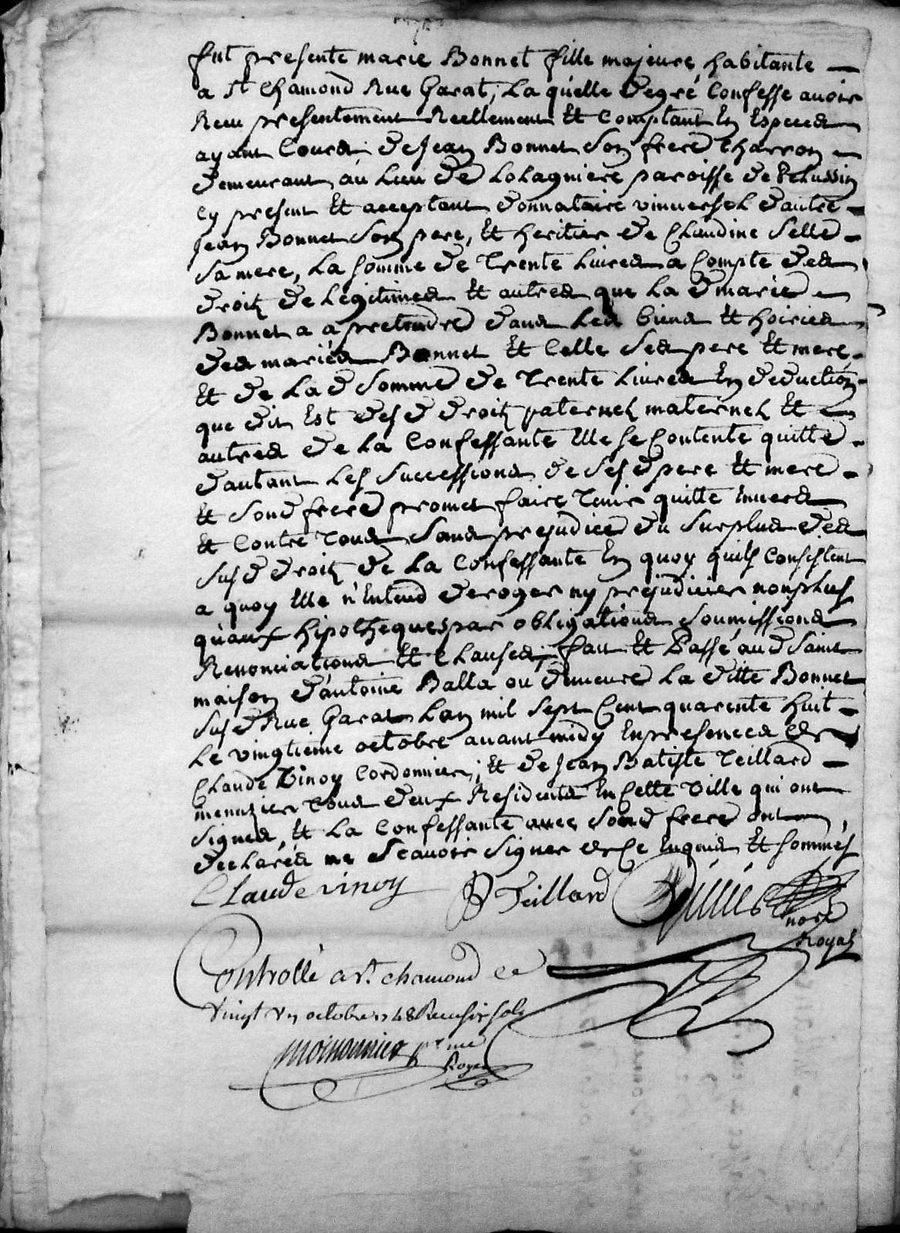 fut presente marie Bonnet fille majeure habitante
a St Chamond Rue Garat, La quelle degré Confesse avoir
Receu presentement Reellement Et Comptant En Especes
ayant Cours de Jean Bonnet Son frere Charron
demeurant au Lieu de paroisse de Pelussin
Cy present Et acceptant donnataire universel d'autre
Jean Bonnet Son pere, Et heritier de Claudine Selle
Sa mere, La somme de Trente Livres a Compte des
droits de Legitimes Et autres que La d marie
Bonnet a a pretendre dans Les biens Et hoiries
des mariés Bonnet Et Celle Ses pere Et mere,
Et de La d Somme de Trente Livres En deduction
que dit Est desd droits paternels maternels Et
autres de La Confessante Elle Se Contente quitte
dautant Les Successions de Sesd pere Et mere
Et Sond frere promet faire Tenir quitte Envers
Et Contre Tous, Sans prejudice du Surplus des
Susd droits de La Confessante En quoy quils Consistent
a quoy Elle n'Entend deroger ny prejudicier nonplus
qu'aux hipotheques par obligations Soumissions
Renonciations Et Clauses, fait Et Passé aud Saint
maison d'antoine Balla ou demeure La ditte Bonnet
Susd Rue Garat Lan mil Sept Cent quarente huit
Le vingtieme octobre avant midy En presences de
Claude Vinoy Cordonnier, Et de Jean Batiste Teillard
menuzier Tous deux Residents En Cette Ville qui ont
Signés, Et La Confessante avec Sond frere ont
declarés ne Scavoir Signer de Ce Enquis Et Sommés
Claude vinoy JB Teillard
nore
Royal
Controllé a St chamond le
vingt un octobre 1748 Receu six sols